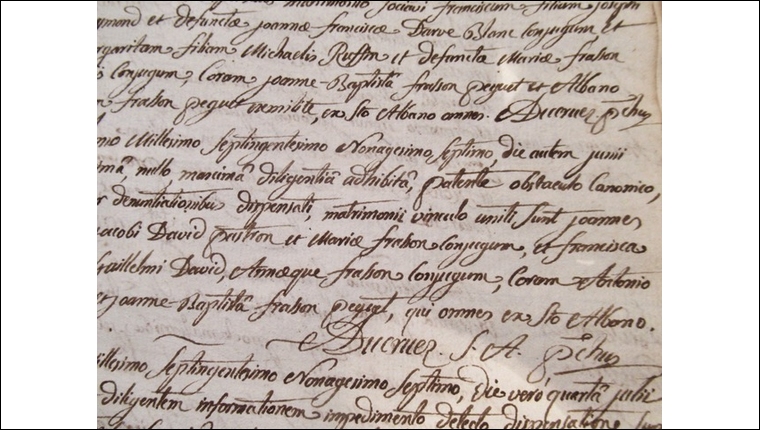 matrimonio sociavi franciscum filium joseph
et defunctæ joannæ franciscæ Darve Blanc conjugum, et
filiam Michaelis Ruffin et defunctæ Mariæ frasson
conjugum, Coram joanne-Baptistâ frasson peguet et Albano
frasson peguet ex Sto Albano omnes. Ducruez. pchus
Millesimo Septingentesimo Nonagesimo Septimo, die autem junii
nullo, maximâ diligentiâ adhibitâ, patente obstaculo Canonico,
denuntiationibus dispensati, matrimonii vinculo uniti Sunt joannes
jacobi David et Mariæ frasson conjugum, et francisca
Guillelmi David, Annæque frasson conjugum, Coram Antonio
et joanne-Baptistâ frasson peguet, qui omnes ex Sto Albano.
Ducruez. S. A. pchus
Septingentesimo Nonagesimo Septimo, die verò quartâ julii
diligentem informationem impedimento detecto, dispensatione